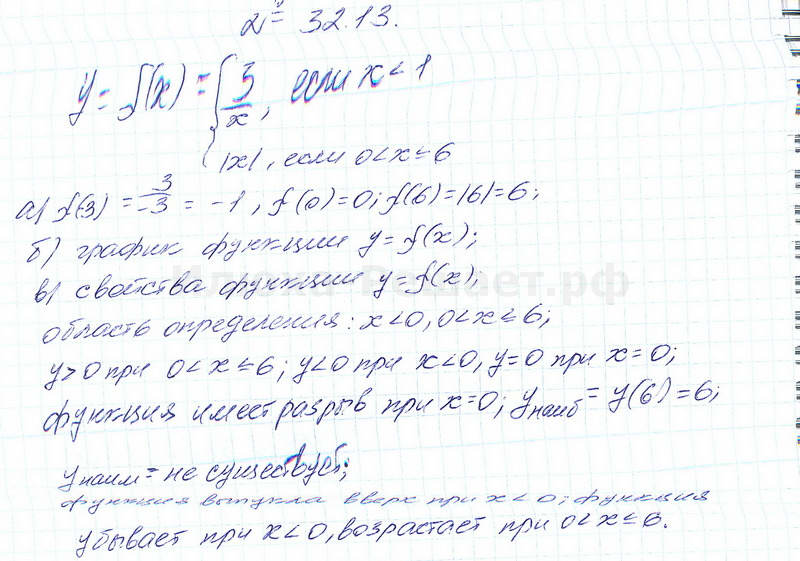 № 32.13.
y = f(x) = { 3/x, если x < 1
|x|, если 0 < x ≤ 6
а) f(3) = 3/-3 = -1, f(0)=0; f(6)=|6|=6;
б) график функции y = f(x);
в) свойства функции y = f(x);
область определения: x<0, 0<x≤6;
y>0 при 0<x≤6; y<0 при x<0, y=0 при x=0;
функция имеет разрыв при x=0; yнаиб = y(6) = 6;
yнаим = не существует;
функция выпукла вверх при x<0; функция
убывает при x<0, возрастает при 0<x≤6.